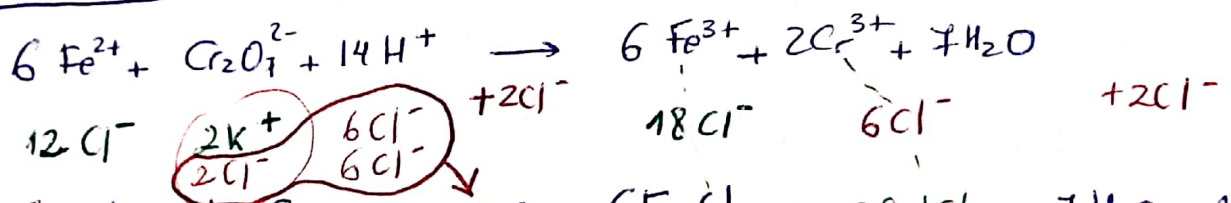 6 Fe²⁺ + Cr₂O₇²⁻ + 14 H⁺ → 6 Fe³⁺ + 2Cr³⁺ + 7H₂O
12 Cl⁻ 2K⁺ 6Cl⁻ +2Cl⁻ 18 Cl⁻ 6Cl⁻ +2Cl⁻
2Cl⁻ 6Cl⁻